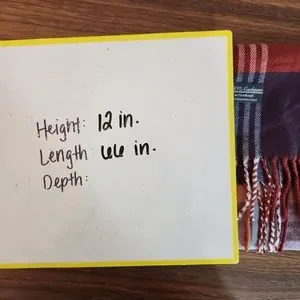 Height: 12 in.
Length 66 in.
Depth:
100% Cashmere